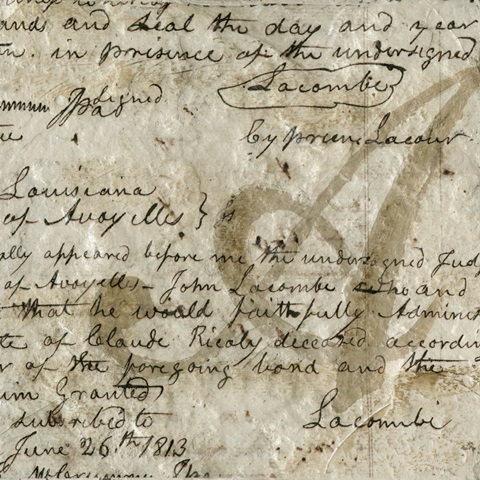 ands and seal the day and year
in presence of the undersigned
signed
Lacombe
by prune Lacour
Louisiana
of Avoyelles } ss
ally appeared before me the undersigned Judg
of Avoyelles - John Lacombe who and
that he would faithfully Adminis
te of Claude Ricaly deceased accordin
r of the foregoing bond and the
him Granted
subsribed to
Lacombe
June 26.th 1813